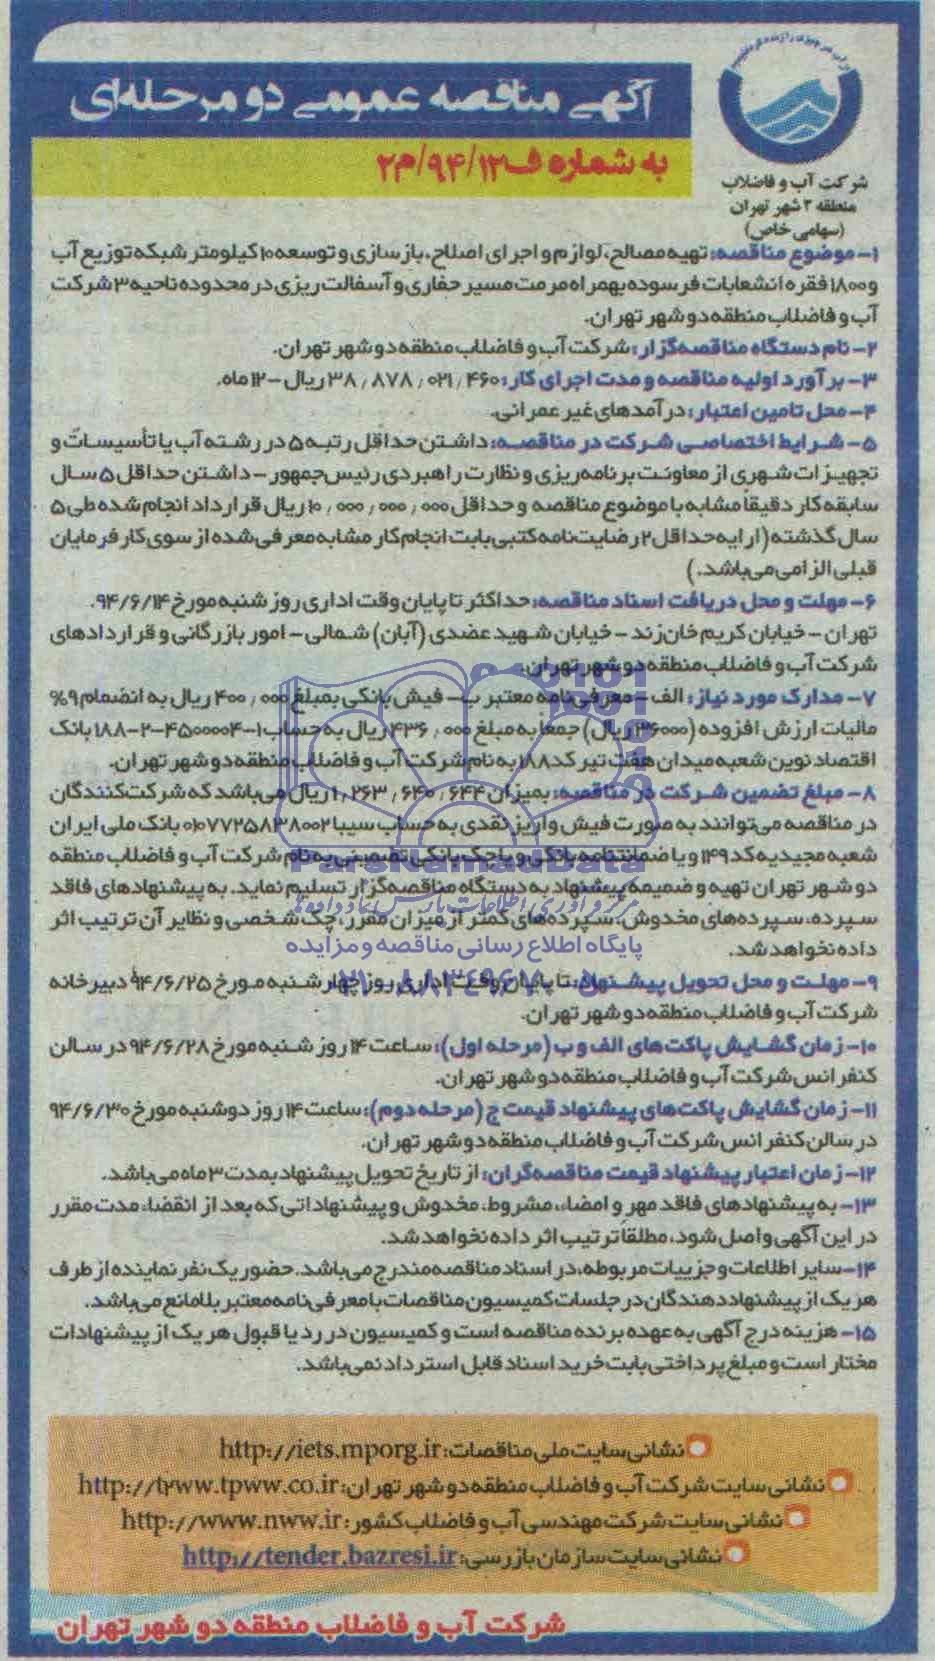 شرکت آب و فاضلاب
منطقه ۲ شهر تهران
(سهامی خاص)
آگهی مناقصه عمومی دو مرحله‌ای
به شماره ف۱۲/۹۴/م۲
۱- موضوع مناقصه: تهیه مصالح، لوازم و اجرای اصلاح، بازسازی و توسعه ۱۰ کیلومتر شبکه توزیع آب
و ۱۸۰۰ فقره انشعابات فرسوده بهمراه مرمت مسیر حفاری و آسفالت ریزی در محدوده ناحیه ۳ شرکت
آب و فاضلاب منطقه دو شهر تهران.
۲- نام دستگاه مناقصه‌گزار: شرکت آب و فاضلاب منطقه دو شهر تهران.
۳- برآورد اولیه مناقصه و مدت اجرای کار: ۳۸٫۸۷۸٫۰۲۱٫۴۶۰ ریال – ۱۲ ماه.
۴- محل تامین اعتبار: درآمدهای غیر عمرانی.
۵- شرایط اختصاصی شرکت در مناقصه: داشتن حداقل رتبه ۵ در رشته آب یا تأسیسات و
تجهیزات شهری از معاونت برنامه‌ریزی و نظارت راهبردی رئیس جمهور – داشتن حداقل ۵ سال
سابقه کار دقیقاً مشابه با موضوع مناقصه و حداقل ۱۰٫۰۰۰٫۰۰۰٫۰۰۰ ریال قرارداد انجام شده طی ۵
سال گذشته (ارایه حداقل ۲ رضایت‌نامه کتبی بابت انجام کار مشابه معرفی شده از سوی کارفرمایان
قبلی الزامی می‌باشد.)
۶- مهلت و محل دریافت اسناد مناقصه: حداکثر تا پایان وقت اداری روز شنبه مورخ ۹۴/۶/۱۴.
تهران – خیابان کریم خان زند – خیابان شهید عضدی (آبان) شمالی – امور بازرگانی و قراردادهای
شرکت آب و فاضلاب منطقه دو شهر تهران.
۷- مدارک مورد نیاز: الف – معرفی‌نامه معتبر ب – فیش بانکی بمبلغ ۴۰۰٫۰۰۰ ریال به انضمام ۹%
مالیات ارزش افزوده (۳۶۰۰۰ ریال) جمعا به مبلغ ۴۳۶٫۰۰۰ ریال به حساب ۱-۴۵۰۰۰۰۴-۲-۱۸۸ بانک
اقتصاد نوین شعبه میدان هفت تیر کد ۱۸۸ به نام شرکت آب و فاضلاب منطقه دو شهر تهران.
۸- مبلغ تضمین شرکت در مناقصه: بمیزان ۱٫۲۶۳٫۶۴۰٫۶۴۴ ریال می‌باشد که شرکت‌کنندگان
در مناقصه می‌توانند به صورت فیش واریز نقدی به حساب سیبا ۰۱۰۷۷۲۵۸۳۸۰۰۲ بانک ملی ایران
شعبه مجیدیه کد ۱۴۹ و یا ضمانتنامه بانکی و یا چک بانکی تضمینی به نام شرکت آب و فاضلاب منطقه
دو شهر تهران تهیه و ضمیمه پیشنهاد به دستگاه مناقصه‌گزار تسلیم نماید. به پیشنهادهای فاقد
سپرده، سپرده‌های مخدوش، سپرده‌های کمتر از میزان مقرر، چک شخصی و نظایر آن ترتیب اثر
داده نخواهد شد.
۹- مهلت و محل تحویل پیشنهاد: تا پایان وقت اداری روز چهارشنبه مورخ ۹۴/۶/۲۵ دبیرخانه
شرکت آب و فاضلاب منطقه دو شهر تهران.
۱۰- زمان گشایش پاکت‌های الف و ب (مرحله اول): ساعت ۱۴ روز شنبه مورخ ۹۴/۶/۲۸ در سالن
کنفرانس شرکت آب و فاضلاب منطقه دو شهر تهران.
۱۱- زمان گشایش پاکت‌های پیشنهاد قیمت ج (مرحله دوم): ساعت ۱۴ روز دوشنبه مورخ ۹۴/۶/۳۰
در سالن کنفرانس شرکت آب و فاضلاب منطقه دو شهر تهران.
۱۲- زمان اعتبار پیشنهاد قیمت مناقصه‌گران: از تاریخ تحویل پیشنهاد بمدت ۳ ماه می‌باشد.
۱۳- به پیشنهادهای فاقد مهر و امضاء، مشروط، مخدوش و پیشنهاداتی که بعد از انقضاء مدت مقرر
در این آگهی واصل شود، مطلقاً ترتیب اثر داده نخواهد شد.
۱۴- سایر اطلاعات و جزییات مربوطه، در اسناد مناقصه مندرج می‌باشد. حضور یک نفر نماینده از طرف
هر یک از پیشنهاددهندگان در جلسات کمیسیون مناقصات با معرفی‌نامه معتبر بلامانع می‌باشد.
۱۵- هزینه درج آگهی به عهده برنده مناقصه است و کمیسیون در رد یا قبول هر یک از پیشنهادات
مختار است و مبلغ پرداختی بابت خرید اسناد قابل استرداد نمی‌باشد.
ParsNamadData
مرکز فرآوری اطلاعات پارس نماد داده‌ها
پایگاه اطلاع رسانی مناقصه و مزایده
۰۲۱-۸۸۳۴۹۶۷۰-۵
نشانی سایت ملی مناقصات: http://iets.mporg.ir
نشانی سایت شرکت آب و فاضلاب منطقه دو شهر تهران: http://t2www.tpww.co.ir
نشانی سایت شرکت مهندسی آب و فاضلاب کشور: http://www.nww.ir
نشانی سایت سازمان بازرسی: http://tender.bazresi.ir
شرکت آب و فاضلاب منطقه دو شهر تهران